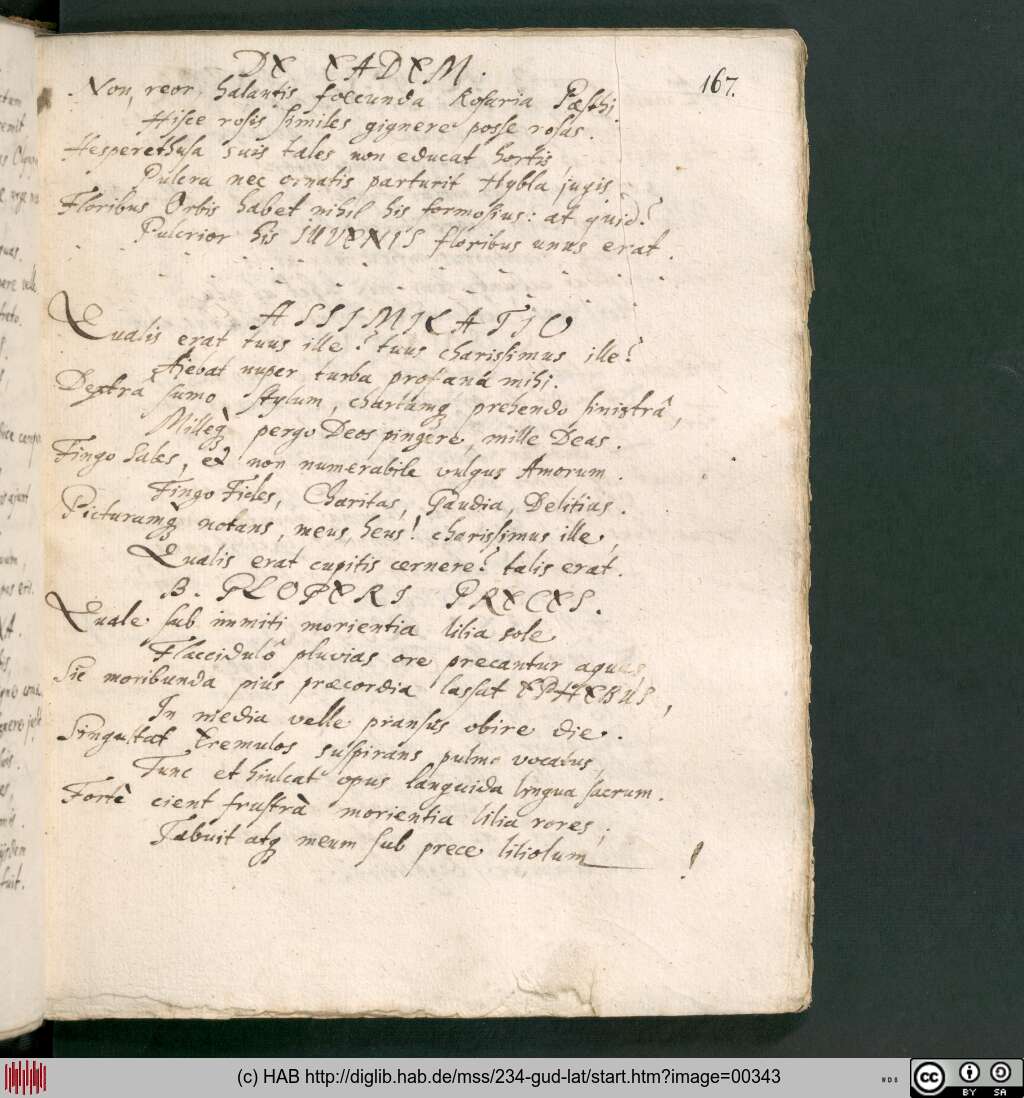 167.
DE EADEM.
Non, reor, halantis foecunda Rosaria Pæsthi
Hisce rosis similes gignere posse rosas.
Hesperethusa suis tales non educat hortis
Pulcra nec ornatis parturit Hybla jugis
Floribus Orbis habet nihil his formosius: at quid?
Pulcrior his IUVENIS floribus unus erat.
ASSIMILATIO
Qualis erat tuus ille? tuus charissimus ille?
Ajebat nuper turba profana mihi.
Dextra sumo stylum, chartamq prehendo sinistrâ,
Milleq pergo Deos pingere, mille Deas.
Fingo Sales, et non numerabile vulgus Amorum.
Fingo Fides, Charitas, Gaudia, Delitias.
Picturamq notans, meus, heus! charissimus ille,
Qualis erat cupitis cernere? talis erat.
B. GLOPERI PRECES.
Quale sub immiti morientia lilia sole
Flaccidulô pluvias ore precantur aquas
Sic moribunda pius præcordia lassat EPHEBUS,
In media velle pransus obire die.
Singultat tremulos suspirans pulmo vocatus,
Tunc et hiulcat opus languida lingua sacrum.
Fortè cient frustrà morientia lilia rores;
Tabuit atq meum sub prece liliolum!
(c) HAB http://diglib.hab.de/mss/234-gud-lat/start.htm?image=00343
cc BY SA